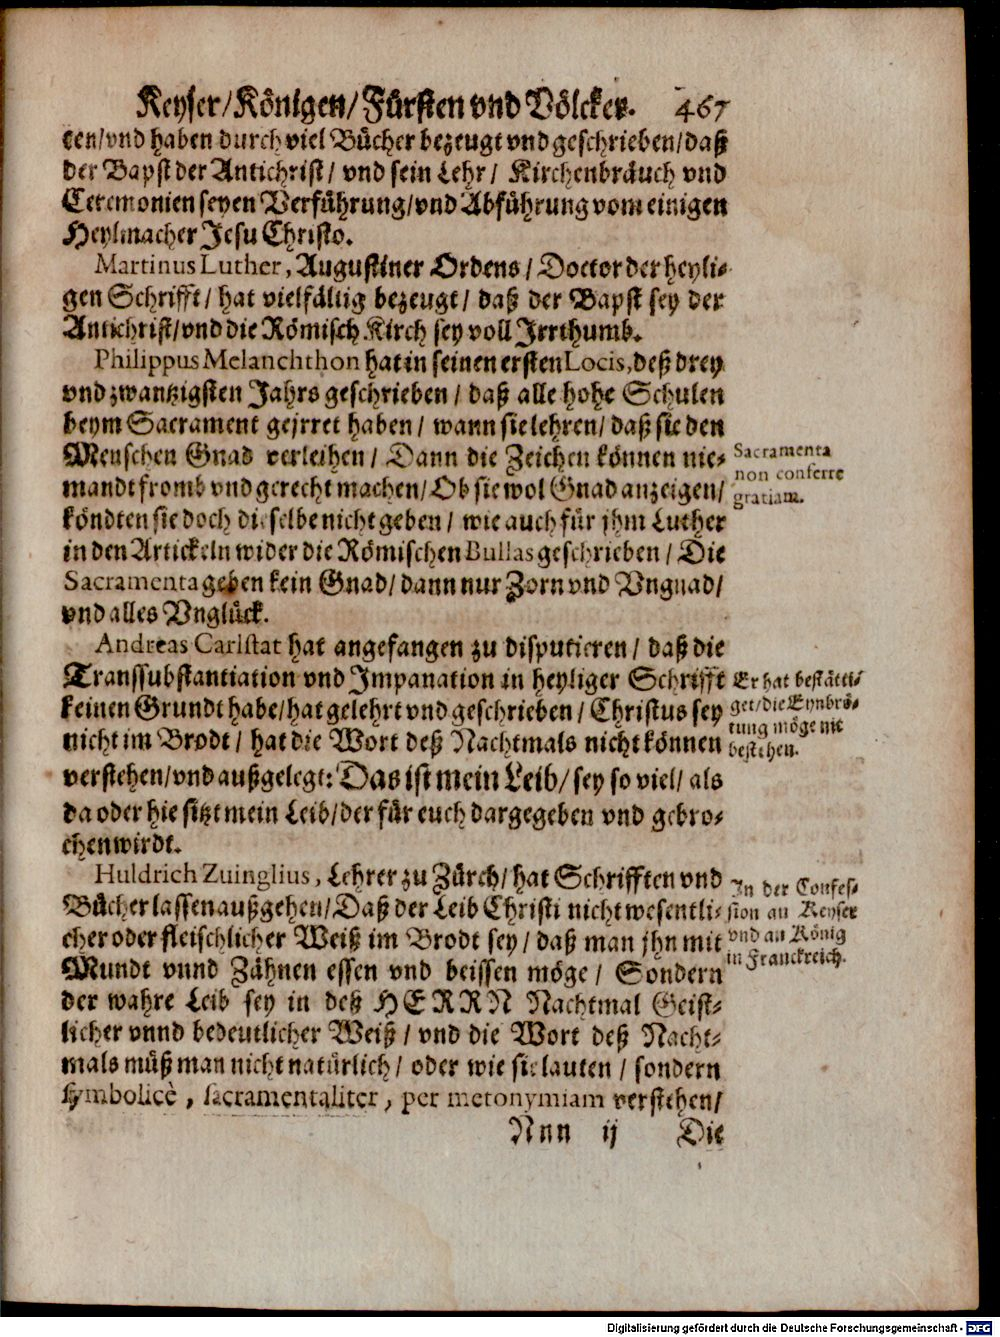 Keyser/Königen/Fürsten vnd Völcker. 467
ten/vnd haben durch viel Bücher bezeugt vnd geschrieben/daß
der Bapst der Antichrist/ vnd sein Lehr/ Kirchenbräuch vnd
Ceremonien seyen Verführung/vnd Abführung vom einigen
Heylmacher Jesu Christo.
Martinus Luther, Augustiner Ordens / Doctor der heyli-
gen Schrifft/ hat vielfältig bezeugt/ daß der Bapst sey der
Antichrist/vnd die Römisch Kirch sey voll Jrrthumb.
Philippus Melanchthon hat in seinen ersten Locis, deß drey
vnd zwantzigsten Jahrs geschrieben / daß alle hohe Schulen
beym Sacrament gejrret haben/ wann sie lehren/ daß sie den
Menschen Gnad verleihen/ Dann die Zeichen können nie-
mandt fromb vnd gerecht machen/ Ob sie wol Gnad anzeigen/
köndten sie doch dieselbe nicht geben/ wie auch für jhm Luther
in den Artickeln wider die Römischen Bullas geschrieben / Die
Sacramenta geben kein Gnad/ dann nur Zorn vnd Vngnad/
vnd alles Vnglück.
Sacramenta
non conferre
gratiam.
Andreas Carlstat hat angefangen zu disputieren/ daß die
Transsubstantiation vnd Jmpanation in heyliger Schrifft
keinen Grundt habe/hat gelehrt vnd geschrieben/ Christus sey
nicht im Brodt/ hat die Wort deß Nachtmals nicht können
verstehen/vnd außgelegt: Das ist mein Leib/ sey so viel/ als
da oder hie sitzt mein Leib/der für euch dargegeben vnd gebro-
chen wirdt.
Er hat bestätti-
get/die Eynbrö-
tung möge nit
bestehen.
Huldrich Zuinglius, Lehrer zu Zürch/ hat Schrifften vnd
Bücher lassen außgehen/ Daß der Leib Christi nicht wesentli-
cher oder fleischlicher Weiß im Brodt sey/ daß man jhn mit
Mundt vnnd Zähnen essen vnd beissen möge/ Sondern
der wahre Leib sey in deß HERRN Nachtmal Geist-
licher vnnd bedeutlicher Weiß / vnd die Wort deß Nacht-
mals müß man nicht natürlich/ oder wie sie lauten / sondern
symbolicè, sacramentaliter, per metonymiam verstehen/
In der Confes-
sion an Keyser
vnd an König
in Franckreich.
Nnn ij Die
Digitalisierung gefördert durch die Deutsche Forschungsgemeinschaft - DFG